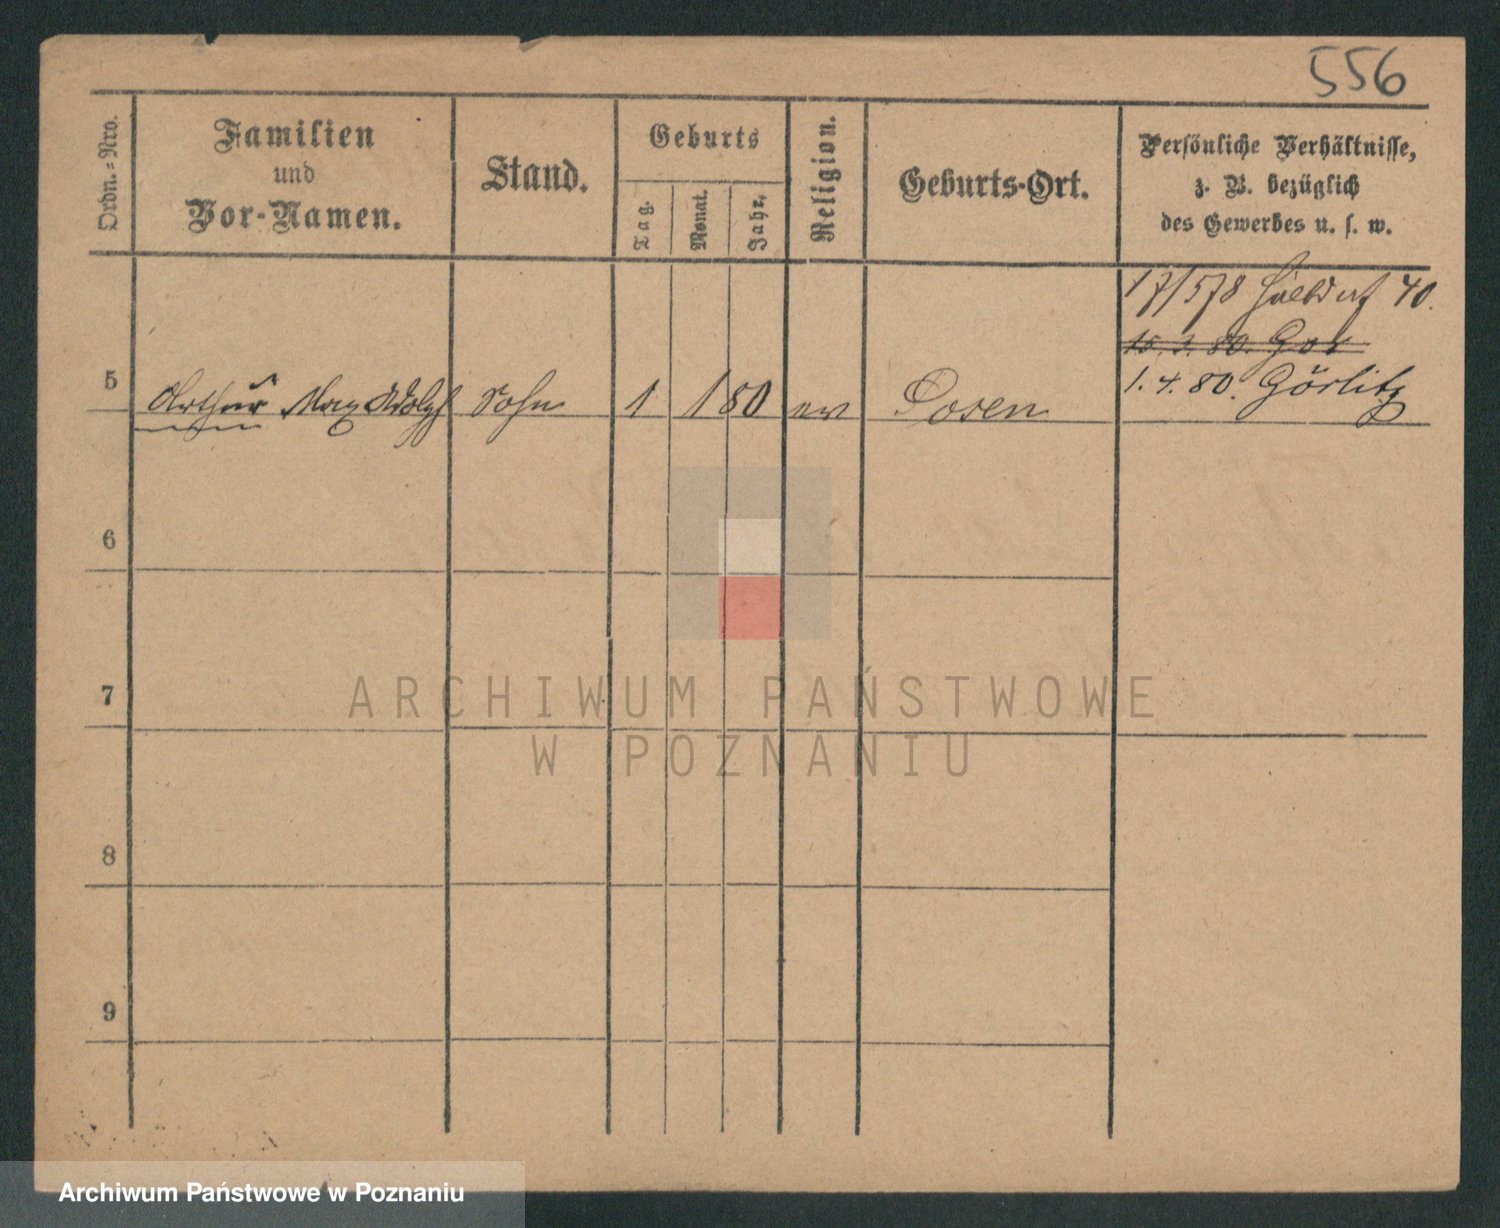 556
Ordn.-Nro.
Familien
und
Vor-Namen.
Stand.
Geburts
Tag.
Monat.
Jahr.
Religion.
Geburts-Ort.
Persönliche Verhältnisse,
z. B. bezüglich
des Gewerbes u. s. w.
17/578 40.
15. 3. 80. Gör
1. 4. 80. Görlitz
5 Arthur Max Adolf Sohn 1 1 80 ev Posen
6
7
8
9
ARCHIWUM PAŃSTWOWE
W POZNANIU
Archiwum Państwowe w Poznaniu